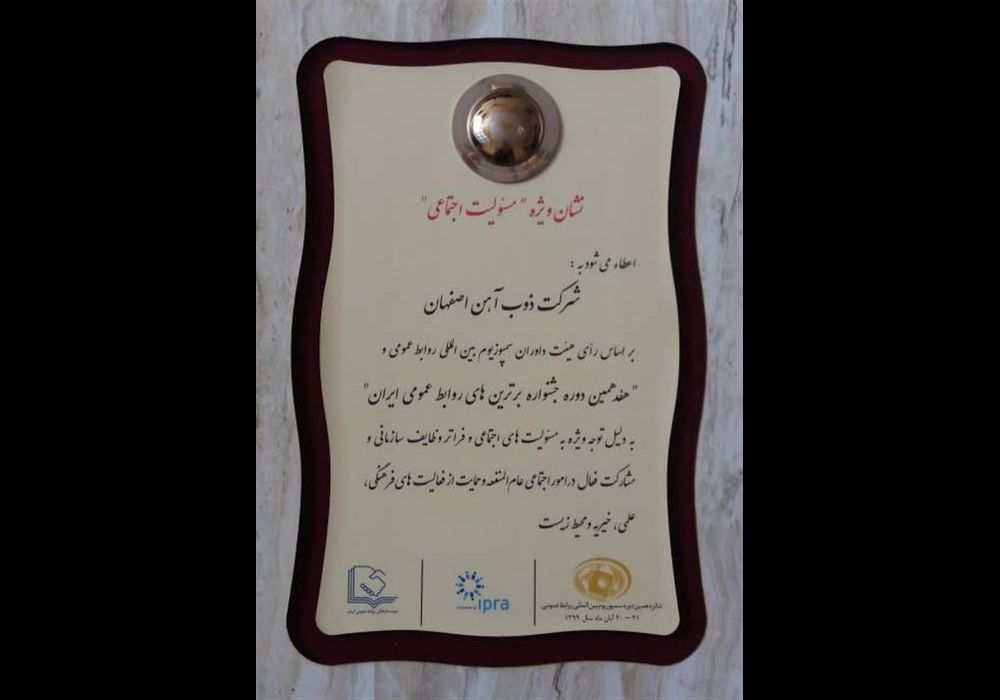 نشان ویژه "مسئولیت اجتماعی"
اعطاء می شود به :
شرکت ذوب آهن اصفهان
بر اساس رأی هیئت داوران سمپوزیوم بین المللی روابط عمومی و
"هفدهمین دوره جشنواره برترین های روابط عمومی ایران"
به دلیل توجه ویژه به مسئولیت های اجتماعی و فراتر وظایف سازمانی و
مشارکت فعال در امور اجتماعی عام المنفعه و حمایت از فعالیت های فرهنگی،
علمی، خیریه و محیط زیست
شانزدهمین دوره سمپوزیوم بین المللی روابط عمومی
۲۰ - ۲۱ آبان ماه سال ۱۳۹۹
ipra